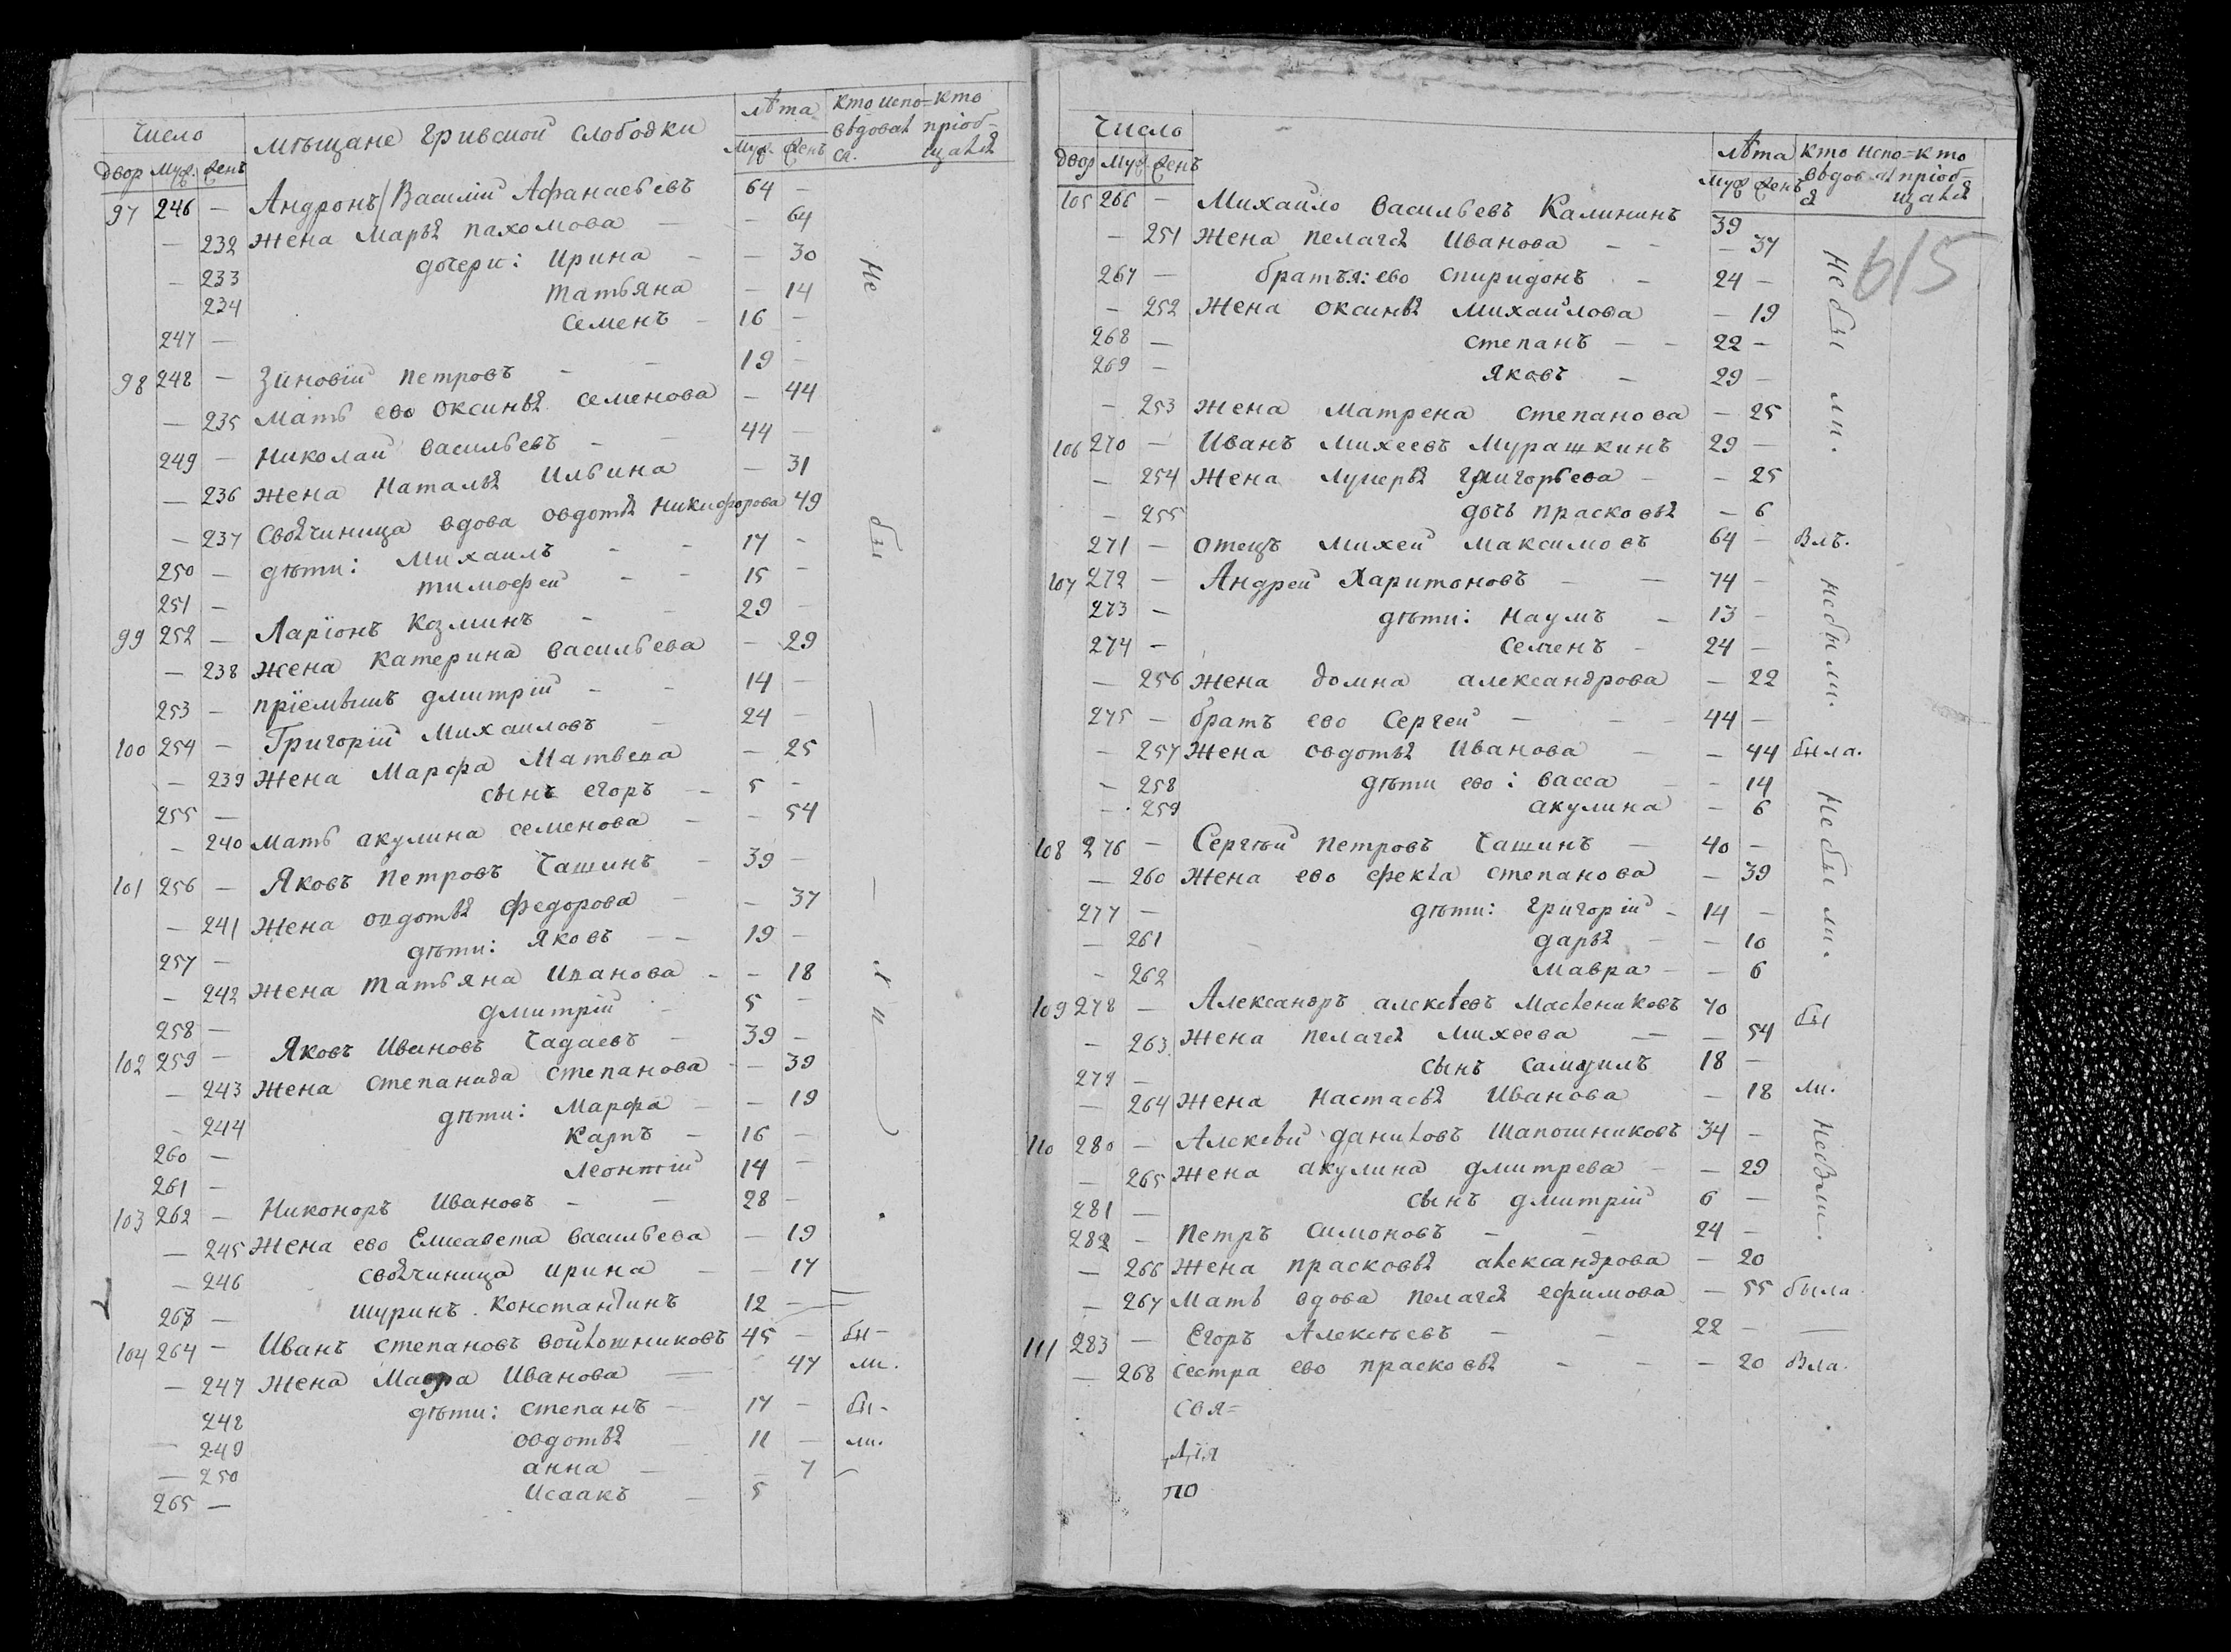 число мѣщане гривской слободки лѣта кто испо= кто
двор муж. женъ муж. женъ вѣдовал ся. пріоб- щался
97 246 — Андронъ/Василій Афанасьевъ 64 —
— 232 жена Марья пахомова — — 64
— 233 дочери: Ирина — — 30
234 татьяна — 14
247 — семенъ — 16 —
98 248 — Зиновій петровъ — — 19 —
— 235 мать ево оксинья семенова — 44
249 — николай васильевъ — — 44 —
— 236 жена наталья ильина — 31
— 237 своячиница вдова овдотья никифорова 49
250 — дѣти: михаилъ — — 17 —
251 — тимофей — — 15 —
99 252 — Ларіонъ козминъ — — 29 —
— 238 жена катерина васильева — 29
253 — пріемышъ дмитрій — — 14 —
100 254 — Григорій михаиловъ — 24 —
— 239 жена марфа матвева — 25
255 — сынъ егоръ — 5 —
— 240 мать акулина семенова — — 54
101 256 — Яковъ петровъ Чашинъ — 39 —
— 241 жена овдотья федорова — — 37
257 — дѣти: яковъ — — 19 —
— 242 жена татьяна иванова — — 18
258 — дмитрій — 5 —
102 259 — Яковъ ивановъ Чадаевъ — 39 —
— 243 жена степанида степанова — — 39
— 244 дѣти: марфа — — 19
260 — карпъ — 16 —
261 — леонтій 14 —
103 262 — никоноръ ивановъ — — 28 —
— 245 жена ево елисавета васильева — 19
— 246 своячиница ирина — — 17
263 — шуринъ константинъ 12 —
104 264 — Иванъ степановъ войлошниковъ 45 — бы-
— 247 жена мавра иванова — 47 ли.
248 дѣти: степанъ — 17 — бы-
249 овдотья — 11 — ли.
— 250 анна — — 7
265 — исаакъ — 5
не бы ли
число лѣта кто испо= кто
двор муж женъ муж женъ вѣдовал ся пріоб- щался
615
105 266 — Михайло васильевъ Калининъ 39
— 251 жена пелагея иванова — — — 37
267 — братья: ево спиридонъ — 24 —
— 252 жена оксинья михайлова — 19
268 — степанъ — — 22 —
269 — яковъ — 29 —
— 253 жена матрена степанова — 25
не бы ли.
106 270 — Иванъ михеевъ мурашкинъ 29 —
— 254 жена лукерья григорьева — — 25
— 255 дочь прасковья — 6
271 — отецъ михей максимовъ 64 — былъ.
107 272 — Андрей Харитоновъ — — 74 —
273 — дѣти: наумъ — 13 —
274 — семенъ — 24 —
— 256 жена домна александрова — 22
не были.
275 — братъ ево сергей — — — 44 —
— 257 жена овдотья иванова — — 44 была.
— 258 дѣти ево: васса — — 14
— 259 акулина — 6
108 276 — Сергѣй петровъ Чашинъ — 40 —
— 260 жена ево фекла степанова — 39
277 — дѣти: григорій — 14 —
— 261 дарья — — 10
— 262 мавра — — 6
не бы ли.
109 278 — Александръ алексѣевъ маслениковъ 70 бы
— 263 жена пелагея михеева — — 54
279 — сынъ самуилъ 18 —
— 264 жена настасья иванова — 18 ли.
110 280 — Алексѣй даниловъ шапошниковъ 34 —
— 265 жена акулина дмитрева — — 29
281 — сынъ дмитрій 6 —
282 — петръ симоновъ — — 24 —
не были.
— 266 жена прасковья александрова — 20
— 267 мать вдова пелагея ефимова — 55 была
111 283 — Егоръ Алексѣевъ — — 22 — —
— 268 сестра ево прасковья — — — 20 была.
свя=
дія
по